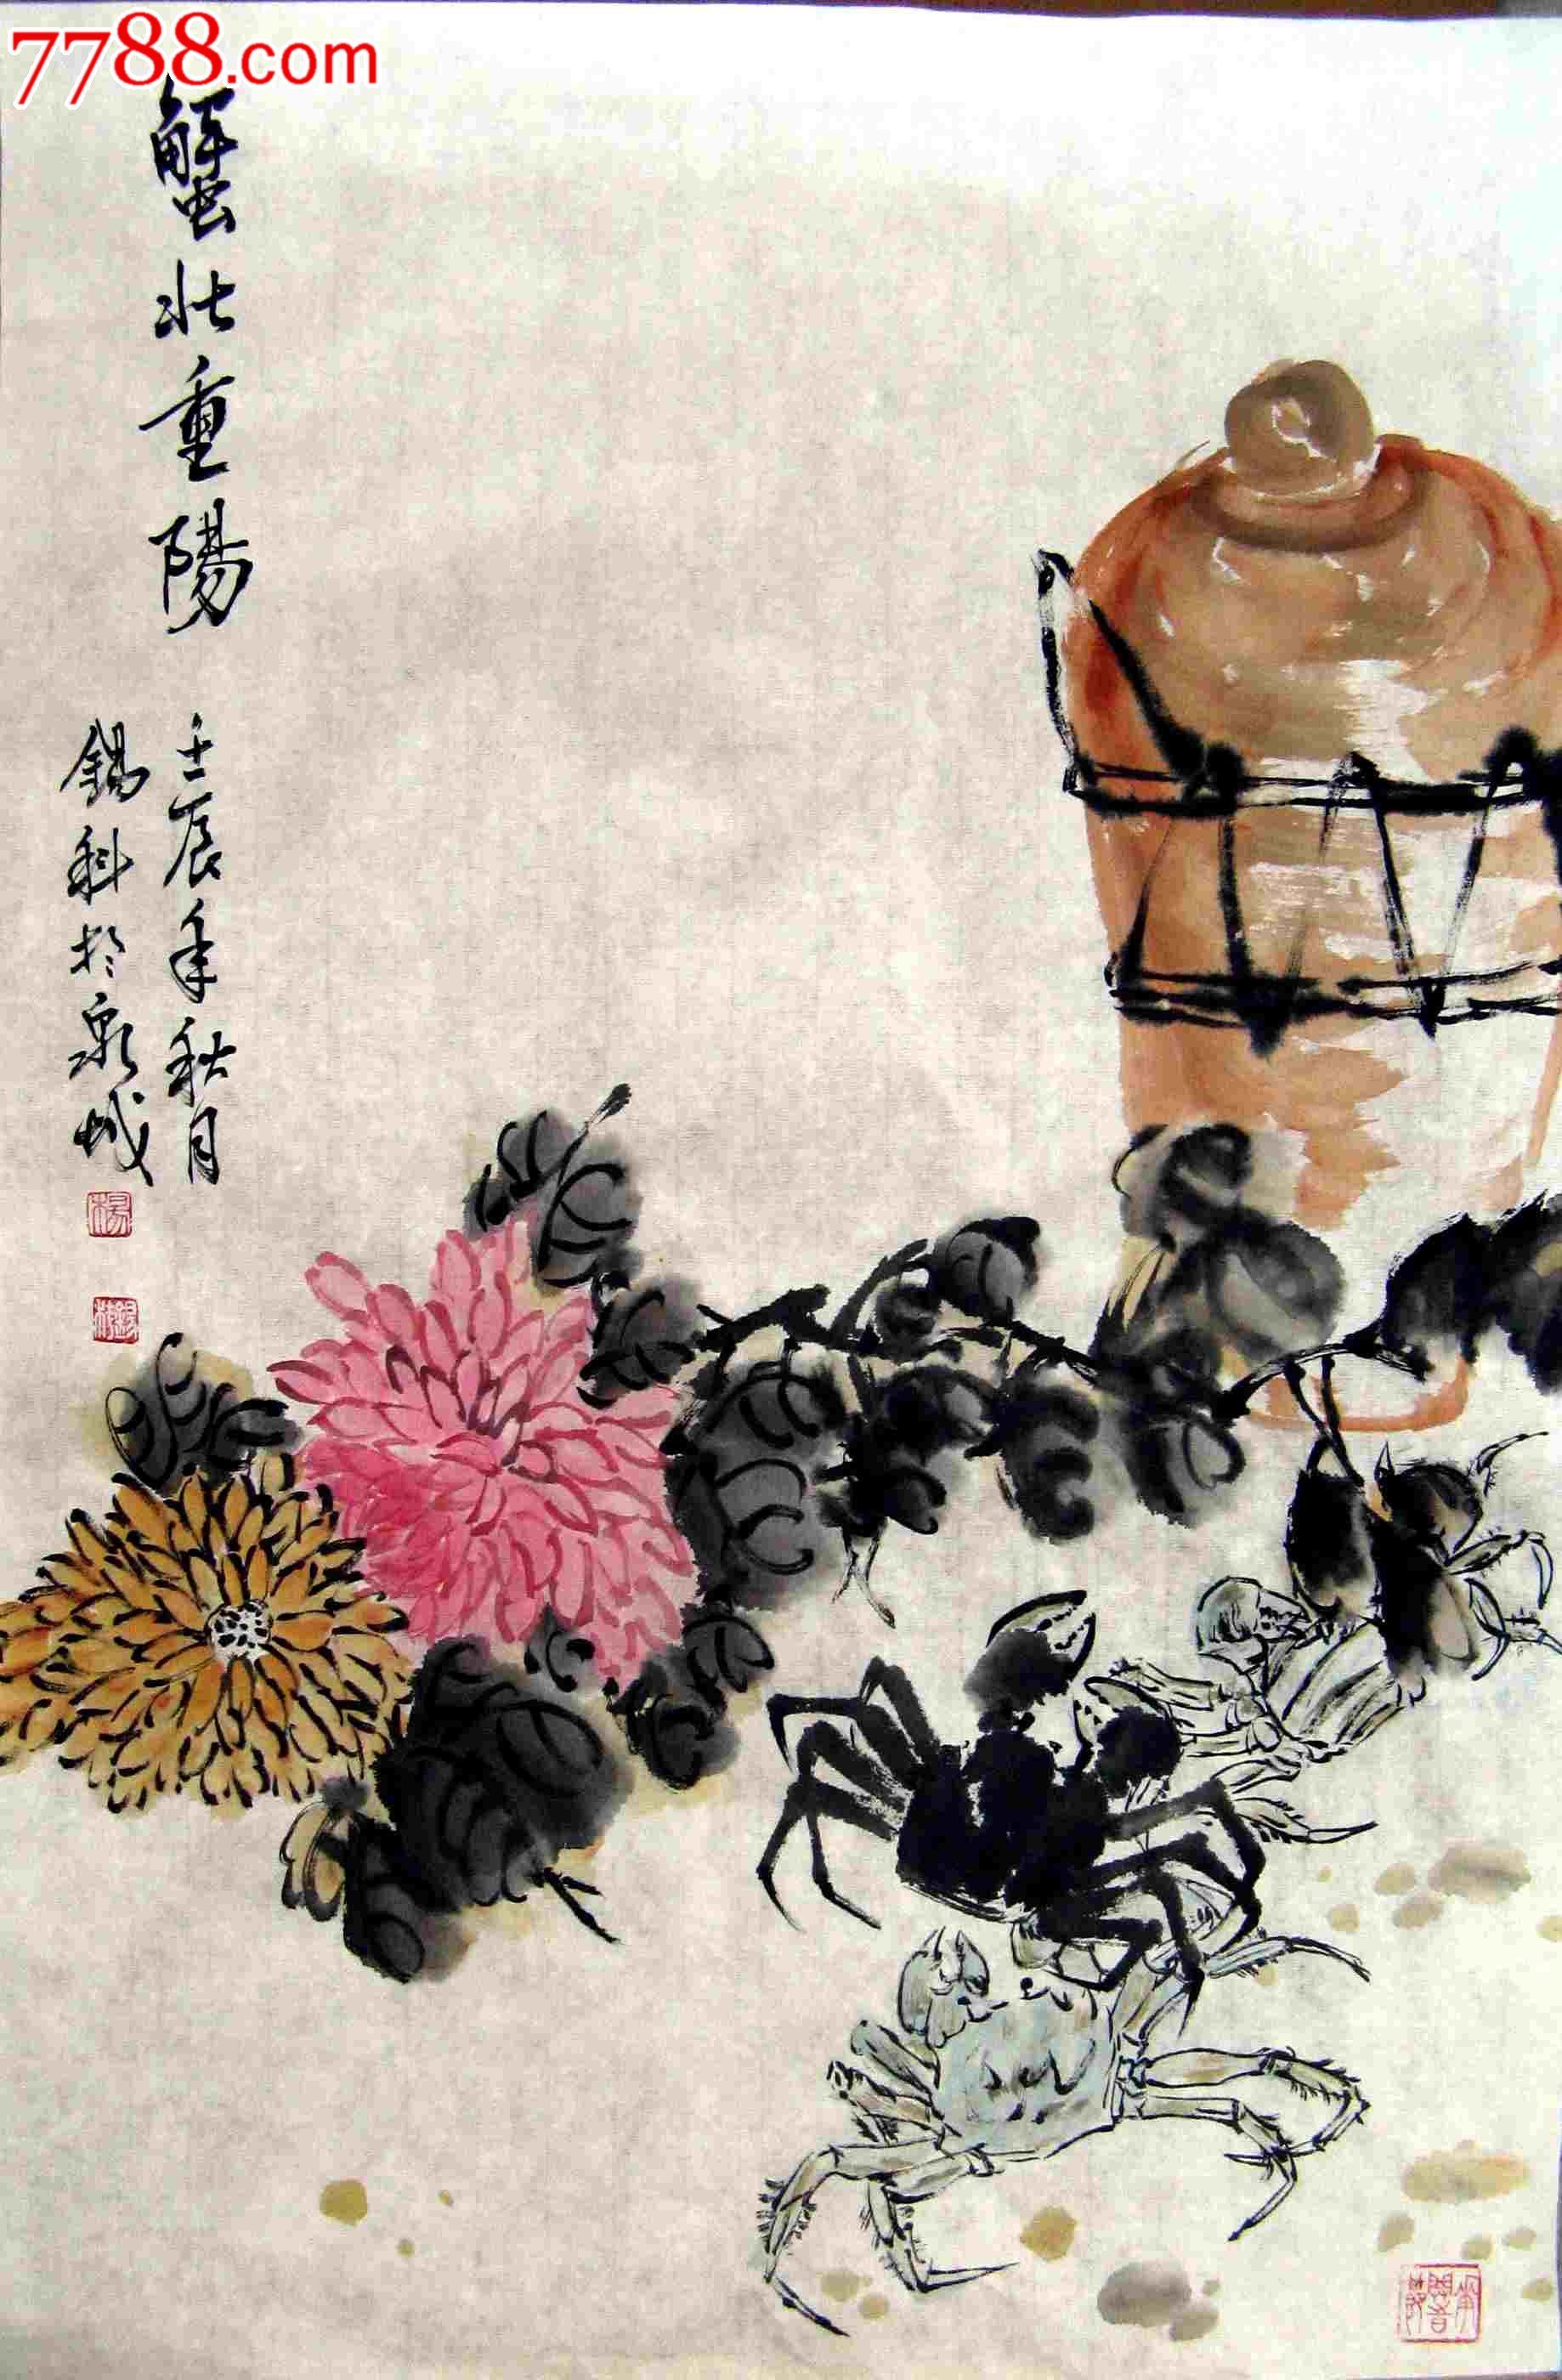 7788.com
蟹壮重陽
壬辰年秋月
錫科於泉城